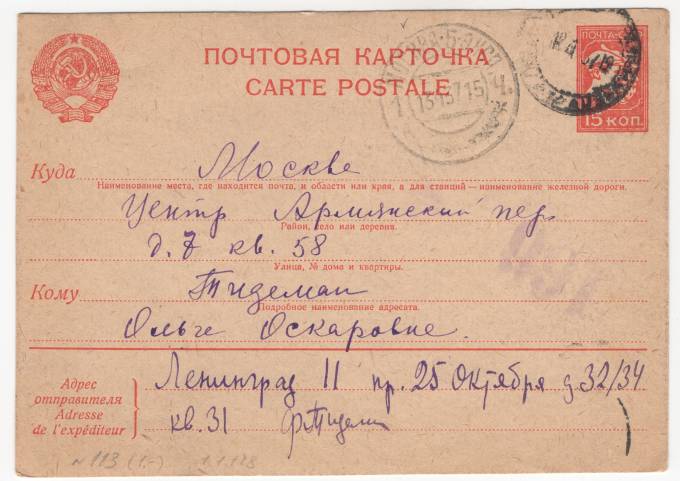 ПОЧТОВАЯ КАРТОЧКА
CARTE POSTALE
ПОЧТА
15 КОП.
Куда Москве
Наименование места, где находится почта, и области или края, а для станций — наименование железной дороги.
Центр Армянский пер.
Район, село или деревня.
д. 7 кв. 58
Улица, № дома и квартиры.
Кому Тидеман
Подробное наименование адресата.
Ольге Оскаровне.
Адрес отправителя
Adresse de l'expéditeur
Ленинград 11 пр. 25 Октября д 32/34
кв. 31
N 113 (1.-) 1.1.128